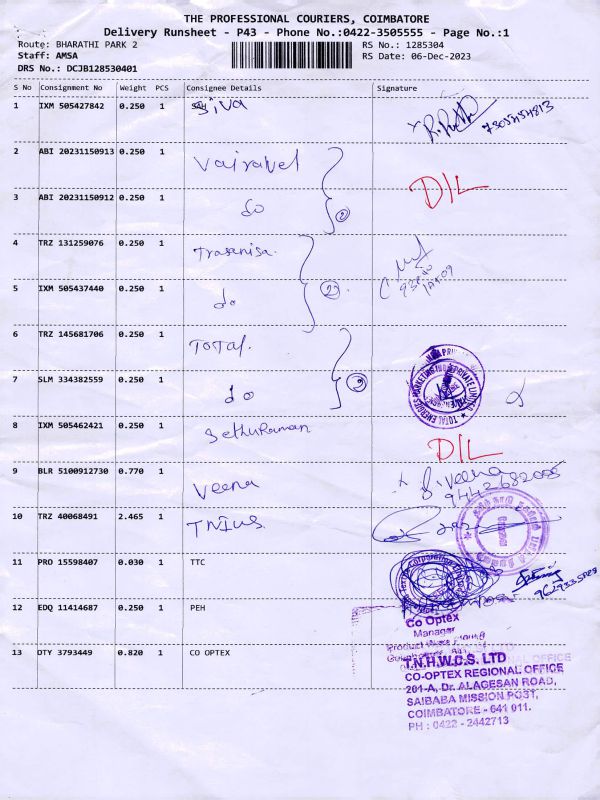 THE PROFESSIONAL COURIERS, COIMBATORE
Delivery Runsheet - P43 - Phone No.:0422-3505555 - Page No.:1
Route: BHARATHI PARK 2 RS No.: 1285304
Staff: AMSA RS Date: 06-Dec-2023
DRS No.: DCJB128530401
S No Consignment No Weight PCS Consignee Details Signature
1 IXM 505427842 0.250 1 Siva
2 ABI 20231150913 0.250 1 Vairavel D/L
3 ABI 20231150912 0.250 1 do
4 TRZ 131259076 0.250 1
5 IXM 505437440 0.250 1 do
6 TRZ 145681706 0.250 1 TOTAL
7 SLM 334382559 0.250 1 do
8 IXM 505462421 0.250 1 Sethuraman D/L
9 BLR 5100912730 0.770 1 Veena Veena
10 TRZ 40068491 2.465 1
11 PRO 15598407 0.030 1 TTC
12 EDQ 11414687 0.250 1 PEH
Co Optex
Manager
13 DTY 3793449 0.820 1 CO OPTEX
T.N.H.W.C.S. LTD
CO-OPTEX REGIONAL OFFICE
201-A, Dr. ALAGESAN ROAD,
SAIBABA MISSION POST,
COIMBATORE - 641 011.
PH : 0422 - 2442713